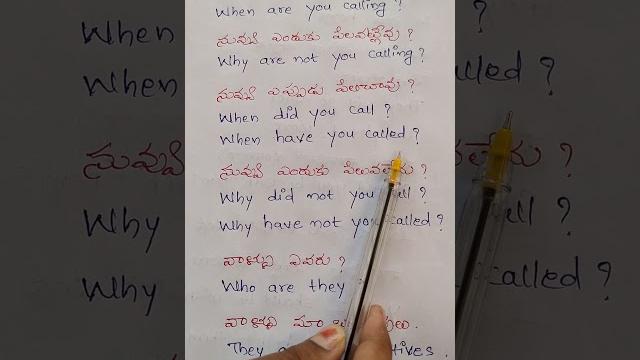 When are you calling?
నువ్వు ఎందుకు పిలవట్లేవు?
Why are not you calling?
నువ్వు ఎప్పుడు పిలిచావు?
When did you call?
When have you called?
నువ్వు ఎందుకు పిలువలేదు?
Why did not you
Why have not you called?
వాళ్ళు ఎవరు?
Who are they
వాళ్ళు మా
They